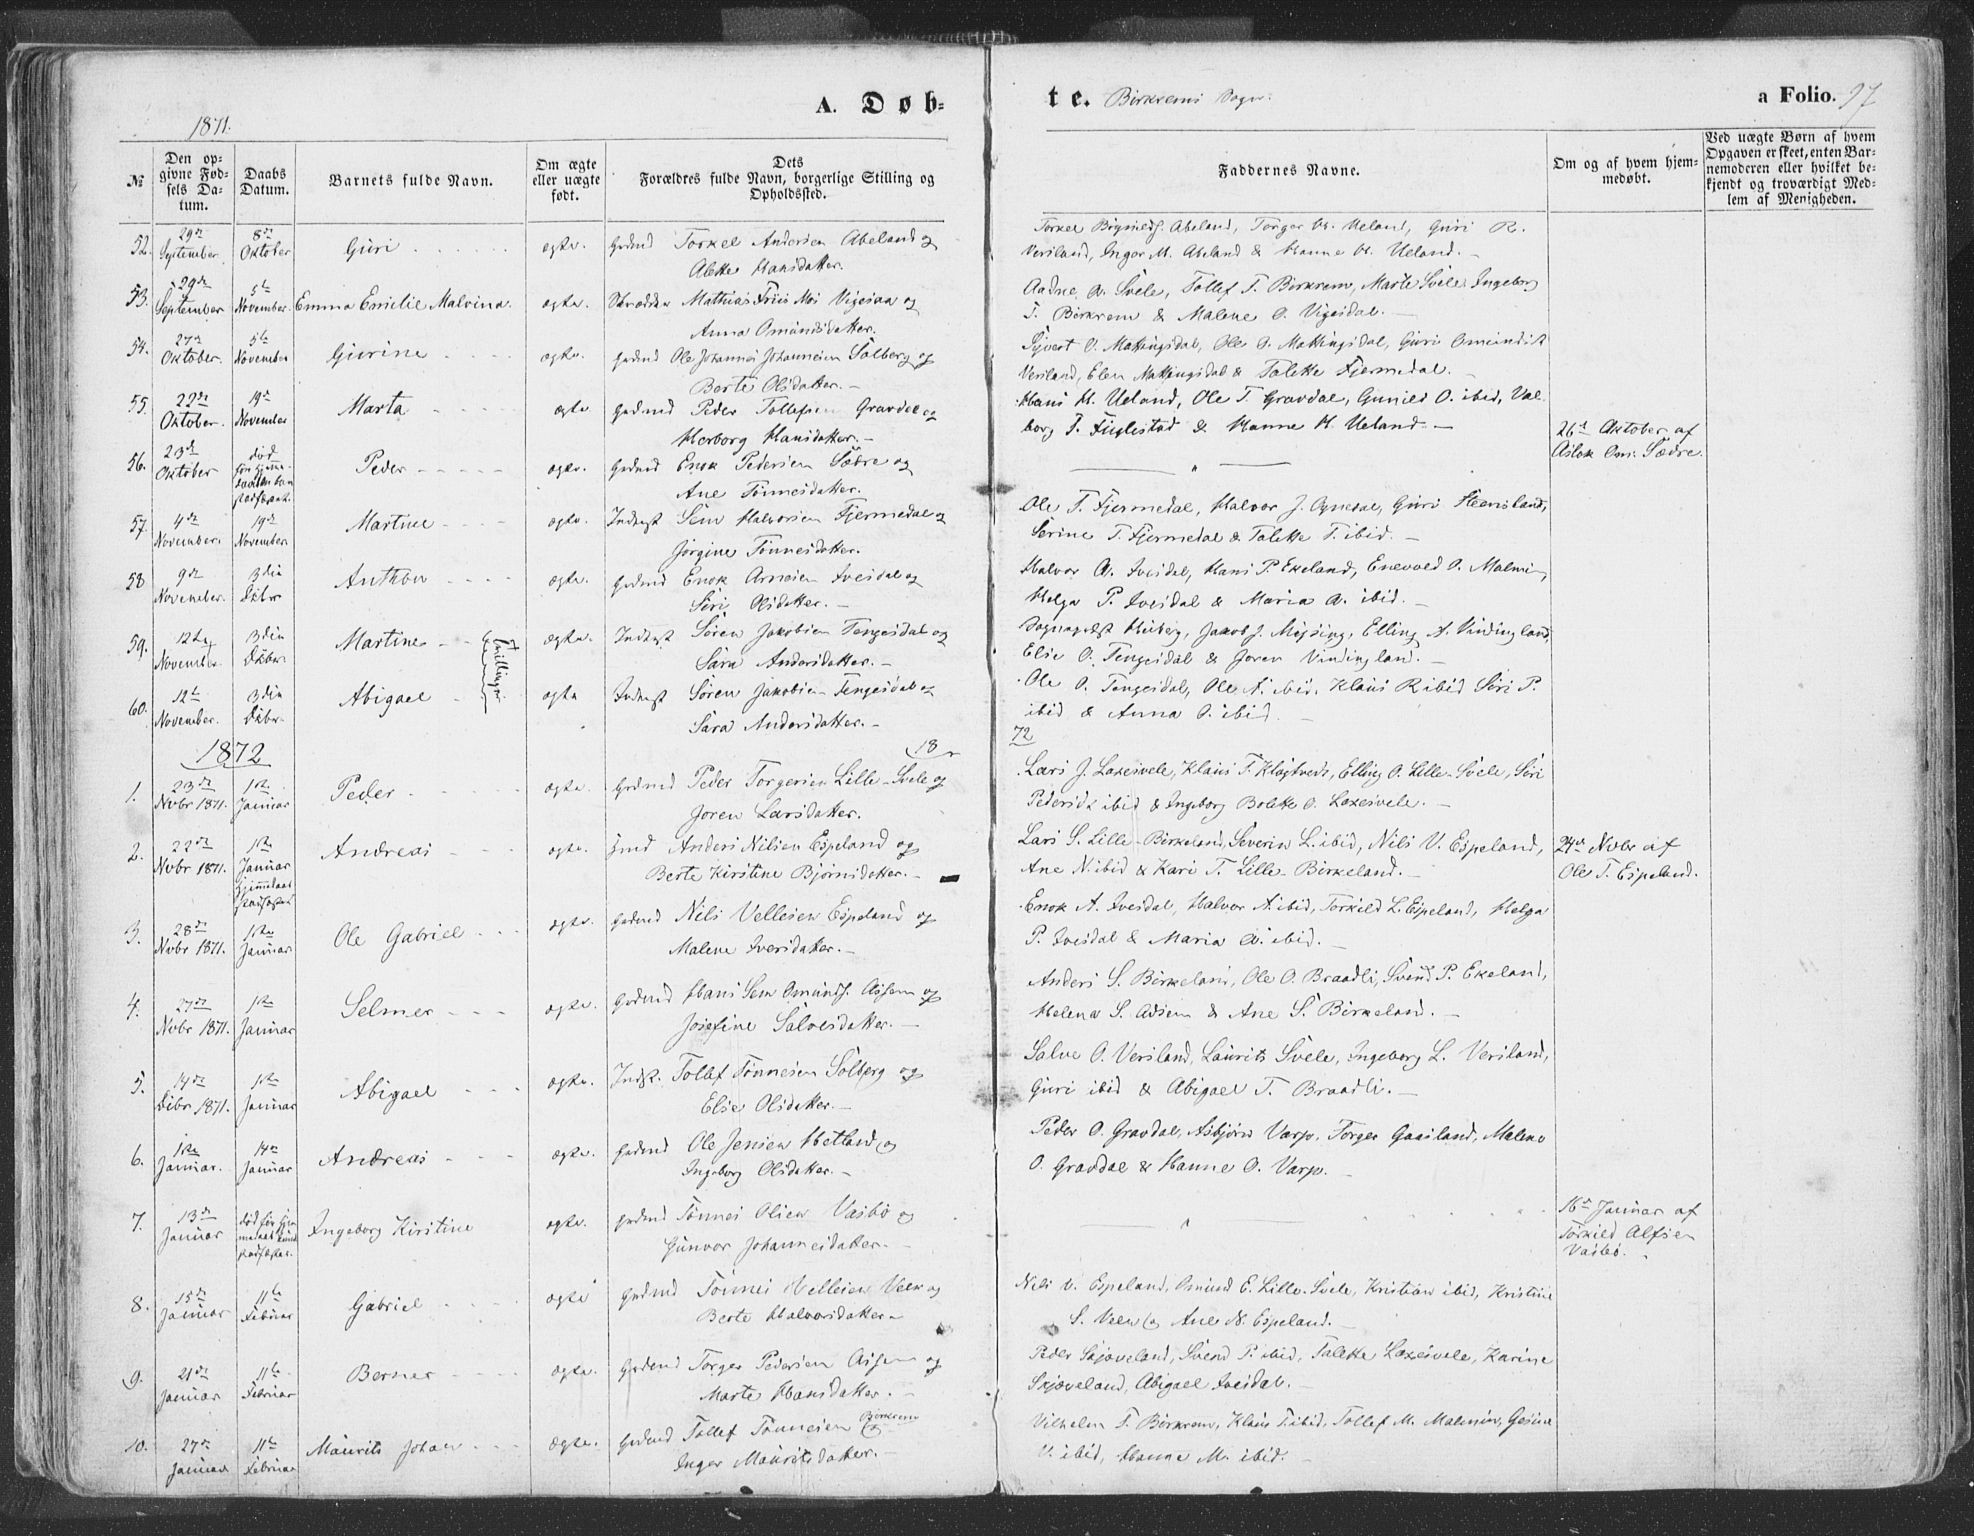 A. Døb-
te. Birkrems Sogn.
a Folio. 97
1871.
№
Den opgivne Fødsels Datum.
Daabs Datum.
Barnets fulde Navn.
Om ægte eller uægte født.
Dets Forældres fulde Navn, borgerlige Stilling og Opholdssted.
Faddernes Navne.
Om og af hvem hjemmedøbt.
Ved uægte Børn af hvem Opgaven er skeet, enten Barnemoderen eller hvilket bekjendt og troværdigt Medlem af Menigheden.
52. 29de September 8de Oktober Guri ægte. Gdmd Torkel Andersen Abeland og
Alette Hansdatter.
Abeland, Torger H. Ueland, Guri R.
Versland, Inger M. Abeland & Hanne H. Ueland.
53. 29de September 5te November. Emma Emelie Malvina. ægte. Skrædder Mathias Friis Moi Vigesaa og
Anna Omundsdatter.
Aadne A. Svele, Tollef T. Birkrem, Marte Svele, Ingeborg
T. Birkrem & Malene O. Vigesdal.
54. 27de Oktober. 5te November Gurine ægte. Gdmd Ole Johannes Johannesen Solberg og
Berte Olsdatter.
Sivert O. Mattingsdal, Ole O. Mattingsdal, Guri Omundsdt
Versland, Elen Mattingsdal & Talette Fjermedal.
55. 22de Oktober. 19de November Marta ægte Gdmd Peder Tollefsen Gravdal og
Herborg Hansdatter.
Hans H. Ueland, Ole T. Gravdal, Gunild O. ibid, Valborg
T. Fuglestad & Hanne H. Ueland.
56. 23de Oktober død før Peder ægte. Gdmd Enok Pedersen Sædre og
Ane Tønnesdatter.
26de Oktober af
Aslak Om. Sædre.
57. 4de November. 19de November Martine ægte. Inderst Sem Halvorsen Fjermedal og
Jørgine Tønnesdatter.
Ole T. Fjermedal, Halvor J. Ognedal, Guri Steensland,
Serine T. Fjermedal & Talette T. ibid.
58 9de November. 3die Dcbr Anthon ægte. Gdmd Enok Arnesen Ivesdal og
Siri Olsdatter.
Halvor A. Ivesdal, Hans P. Ekeland, Enevold O. Malmin,
Helga P. Ivesdal & Maria A. ibid.
59. 12te November. 3die Dcbr. Martine Tvillinger ægte. Inderst Søren Jakobsen Tengesdal og
Sara Andersdatter.
Sogneprest Heiberg, Jakob J. Møgsing, Elling A. Vindingland,
Elie O. Tengesdal & Joren Vindingland.
60. 12te November. 3die Dcbr. Abigael ægte Inderst Søren Jakobsen Tengesdal og
Sara Andersdatter.
Ole O. Tengesdal, Ole A. ibid, Klaus R ibid Siri P.
ibid & Anna O. ibid.
1872
18
72
1. 23de Nvbr 1871. 1ste Januar Peder ægte. Gdmd Peder Torgersen Lille-Svele og
Joren Larsdatter.
Lars J. Laxesvele, Klaus T. Kløgtvedt, Elling O. Lille-Svele, Siri
Pedersdt ibid & Ingeborg Bolette O. Laxesvele.
2. 22de Nvbr 1871. 1ste Januar Andreas ægte. Gmd Anders Nilsen Espeland og
Berte Kirstine Bjørnsdatter.
Lars S. Lille-Birkeland, Severin L. ibid, Nils V. Espeland,
Ane N. ibid & Kari T. Lille-Birkeland.
24de Nvbr af
Ole T. Espeland.
3. 28de Nvbr 1871. 1ste Januar. Ole Gabriel ægte. Gdmd Nils Vellesen Espeland og
Malene Iversdatter.
Enok A. Ivesdal, Halvor A. ibid, Torkild L. Espeland, Helga
P. Ivesdal & Maria A. ibid.
4. 27de Nvbr 1871. 1ste Januar Selmer ægte. Gdmd Hans Sem Omunds. Assem og
Josefine Salvesdatter.
Anders S. Birkeland, Ole O. Braadli, Svend P. Ekeland,
Helena S. Adsem & Ane S. Birkeland.
5. 14de Dcbr 1871. 1ste Januar Abigael ægte. Indst. Tollef Tønnesen Solberg og
Elie Olsdatter.
Salve O. Versland, Laurits Svele, Ingeborg L. Versland,
Guri ibid & Abigael T. Braadli.
6. 1ste Januar. 14de Januar Andreas ægte. Gdmd Ole Jensen Hetland og
Ingeborg Olsdatter.
Peder O. Gravdal, Asbjørn Varp, Torger Gaasland, Malene
O. Gravdal & Hanne O. Varp.
7. 13de Januar død før Ingeborg Kirstine ægte. Gdmd Tønnes Olsen Vasbø og
Gunvor Johannesdatter.
16de Januar af
Torkild Alfsen
Vasbø.
8. 15de Januar 11te Februar Gabriel ægte Gdmd Tønnes Vellesen Veen og
Berte Halvorsdatter
Nils V. Espeland, Omund E. Lille-Svele, Kristian ibid, Kristine
S. Veen og Ane N. Espeland.
9. 21de Januar 11te Februar Berner ægte. Gdmd Torger Pedersen Assem og
Marte Hansdatter.
Peder Skjæveland, Svend P. ibid, Talette Laxesvele, Karine
Skjæveland, Abigael Ivesdal.
10. 27de Januar 11te Februar Maurits Johan ægte. Gdmd Tollef Tønnesen Birkrem og
Inger Mauritsdatter.
Vilhelm T. Birkrem, Klaus T. ibid, Tollef M. Malmin, Gesine
V. ibid, Hanne M. ibid.